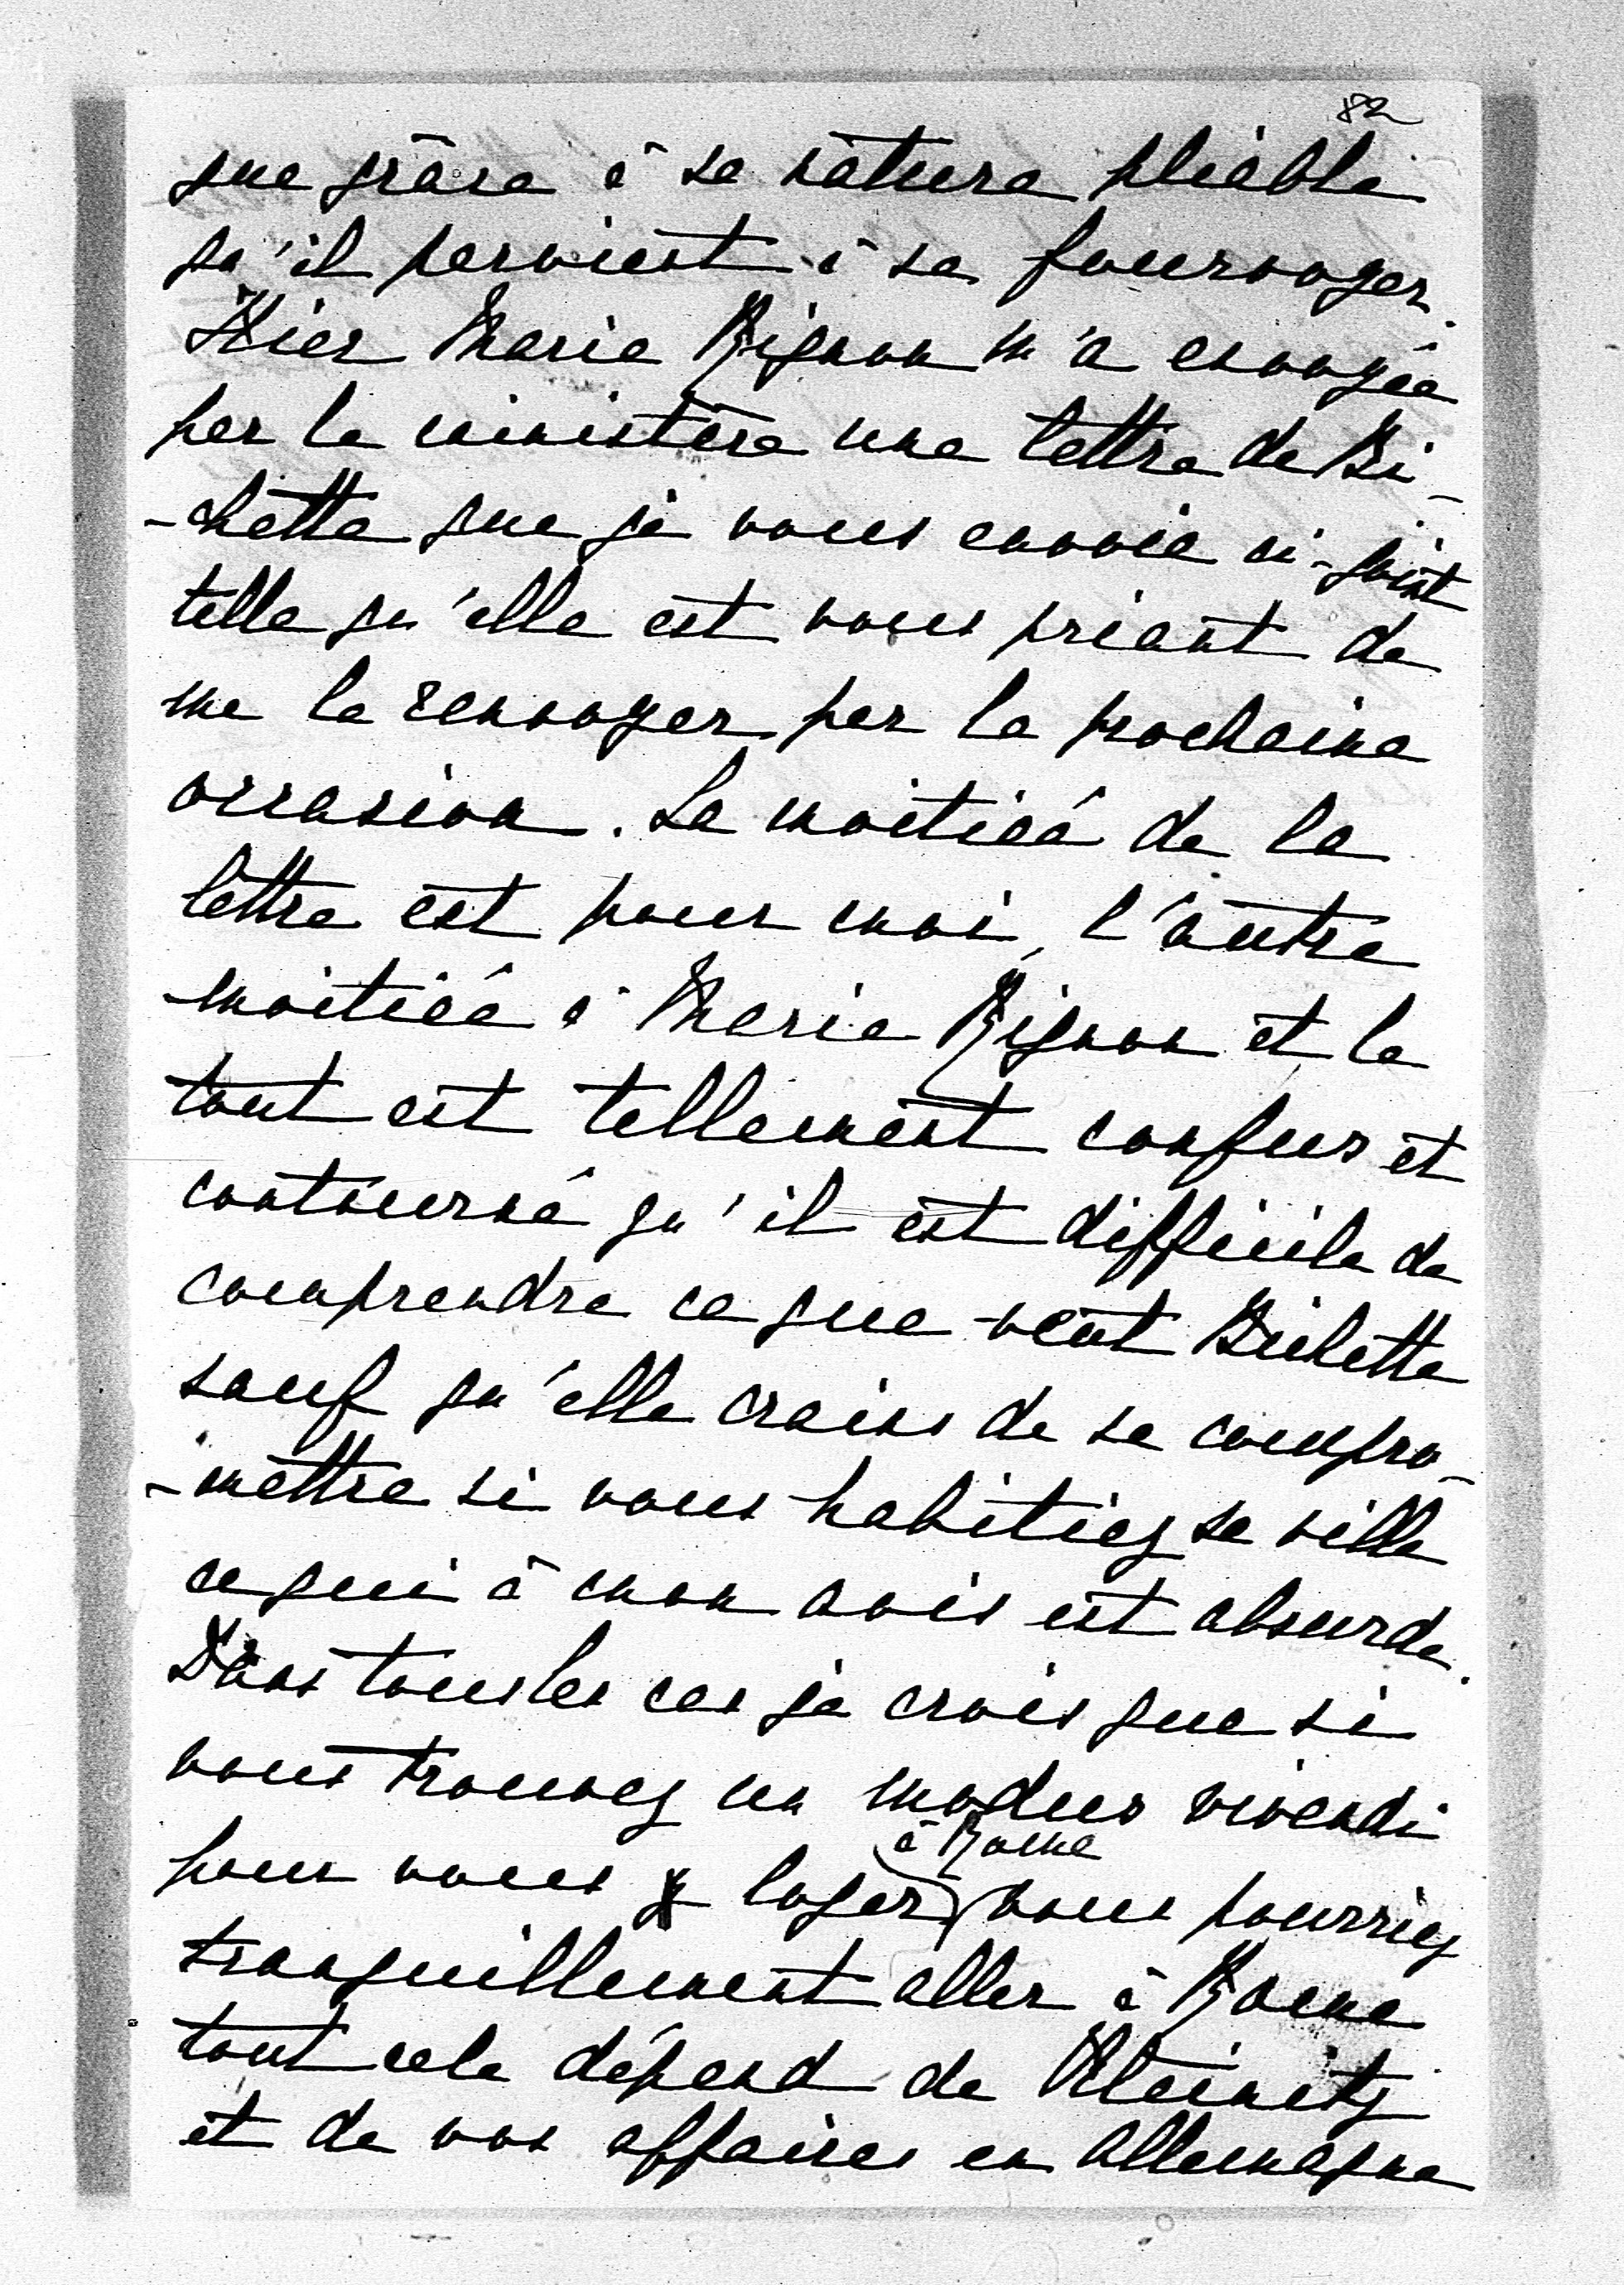 82
que grâce à sa nature pliable
qu'il parvient à se fourvoyer.
Hier Marie Rignon m'a envoyée
par le ministère une lettre de Bi-
-chette que je vous envoie ci-joint
telle qu'elle est vous priant de
me la renvoyer par la prochaine
occasion. La moitieé de la
lettre est pour moi, l'autre
moitieé à Marie Rignon et le
tout est tellement confus et
contourné qu'il est difficile de
comprendre ce que veut Bichette
sauf qu'elle crains de se compro-
-mettre si vous habitiez sa villa
ce qui à mon avis est absurde.
Dans tous les cas je crois que si
vous trouvez un modus vivendi
à Rome
pour vous loger vous pourriez
tranquillement aller à Rome
tout cela dépend de Kleinitz
et de vos affaires en Allemagne